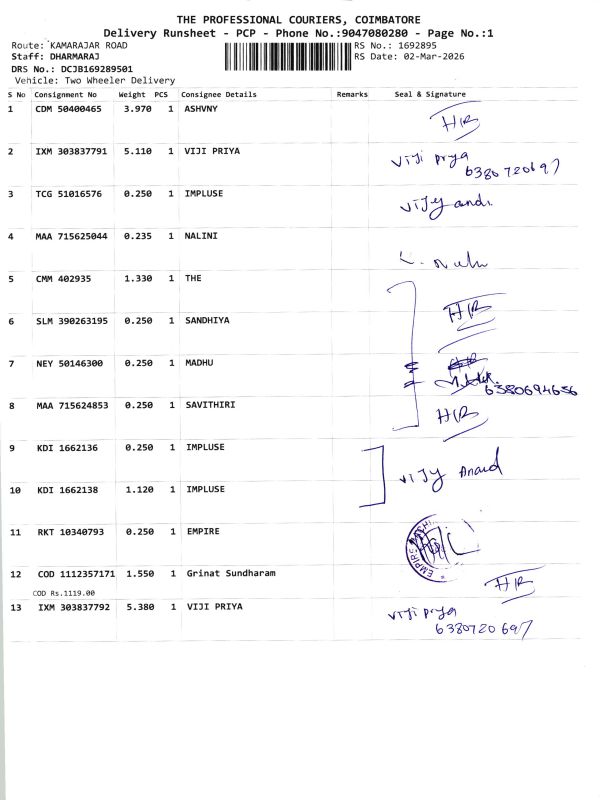 THE PROFESSIONAL COURIERS, COIMBATORE
Delivery Runsheet - PCP - Phone No.:9047080280 - Page No.:1
Route: KAMARAJAR ROAD RS No.: 1692895
Staff: DHARMARAJ RS Date: 02-Mar-2026
DRS No.: DCJB169289501
Vehicle: Two Wheeler Delivery
S No Consignment No Weight PCS Consignee Details Remarks Seal & Signature
1 CDM 50400465 3.970 1 ASHVNY HR
2 IXM 303837791 5.110 1 VIJI PRIYA viji priya
6380720697
3 TCG 51016576 0.250 1 IMPLUSE vijy anand
4 MAA 715625044 0.235 1 NALINI
5 CMM 402935 1.330 1 THE HR
6 SLM 390263195 0.250 1 SANDHIYA
7 NEY 50146300 0.250 1 MADHU
6380694636
8 MAA 715624853 0.250 1 SAVITHIRI HR
9 KDI 1662136 0.250 1 IMPLUSE vijy Anand
10 KDI 1662138 1.120 1 IMPLUSE
11 RKT 10340793 0.250 1 EMPIRE EMPIRE
12 COD 1112357171 1.550 1 Grinat Sundharam HR
COD Rs.1119.00
13 IXM 303837792 5.380 1 VIJI PRIYA viji priya
6380720697